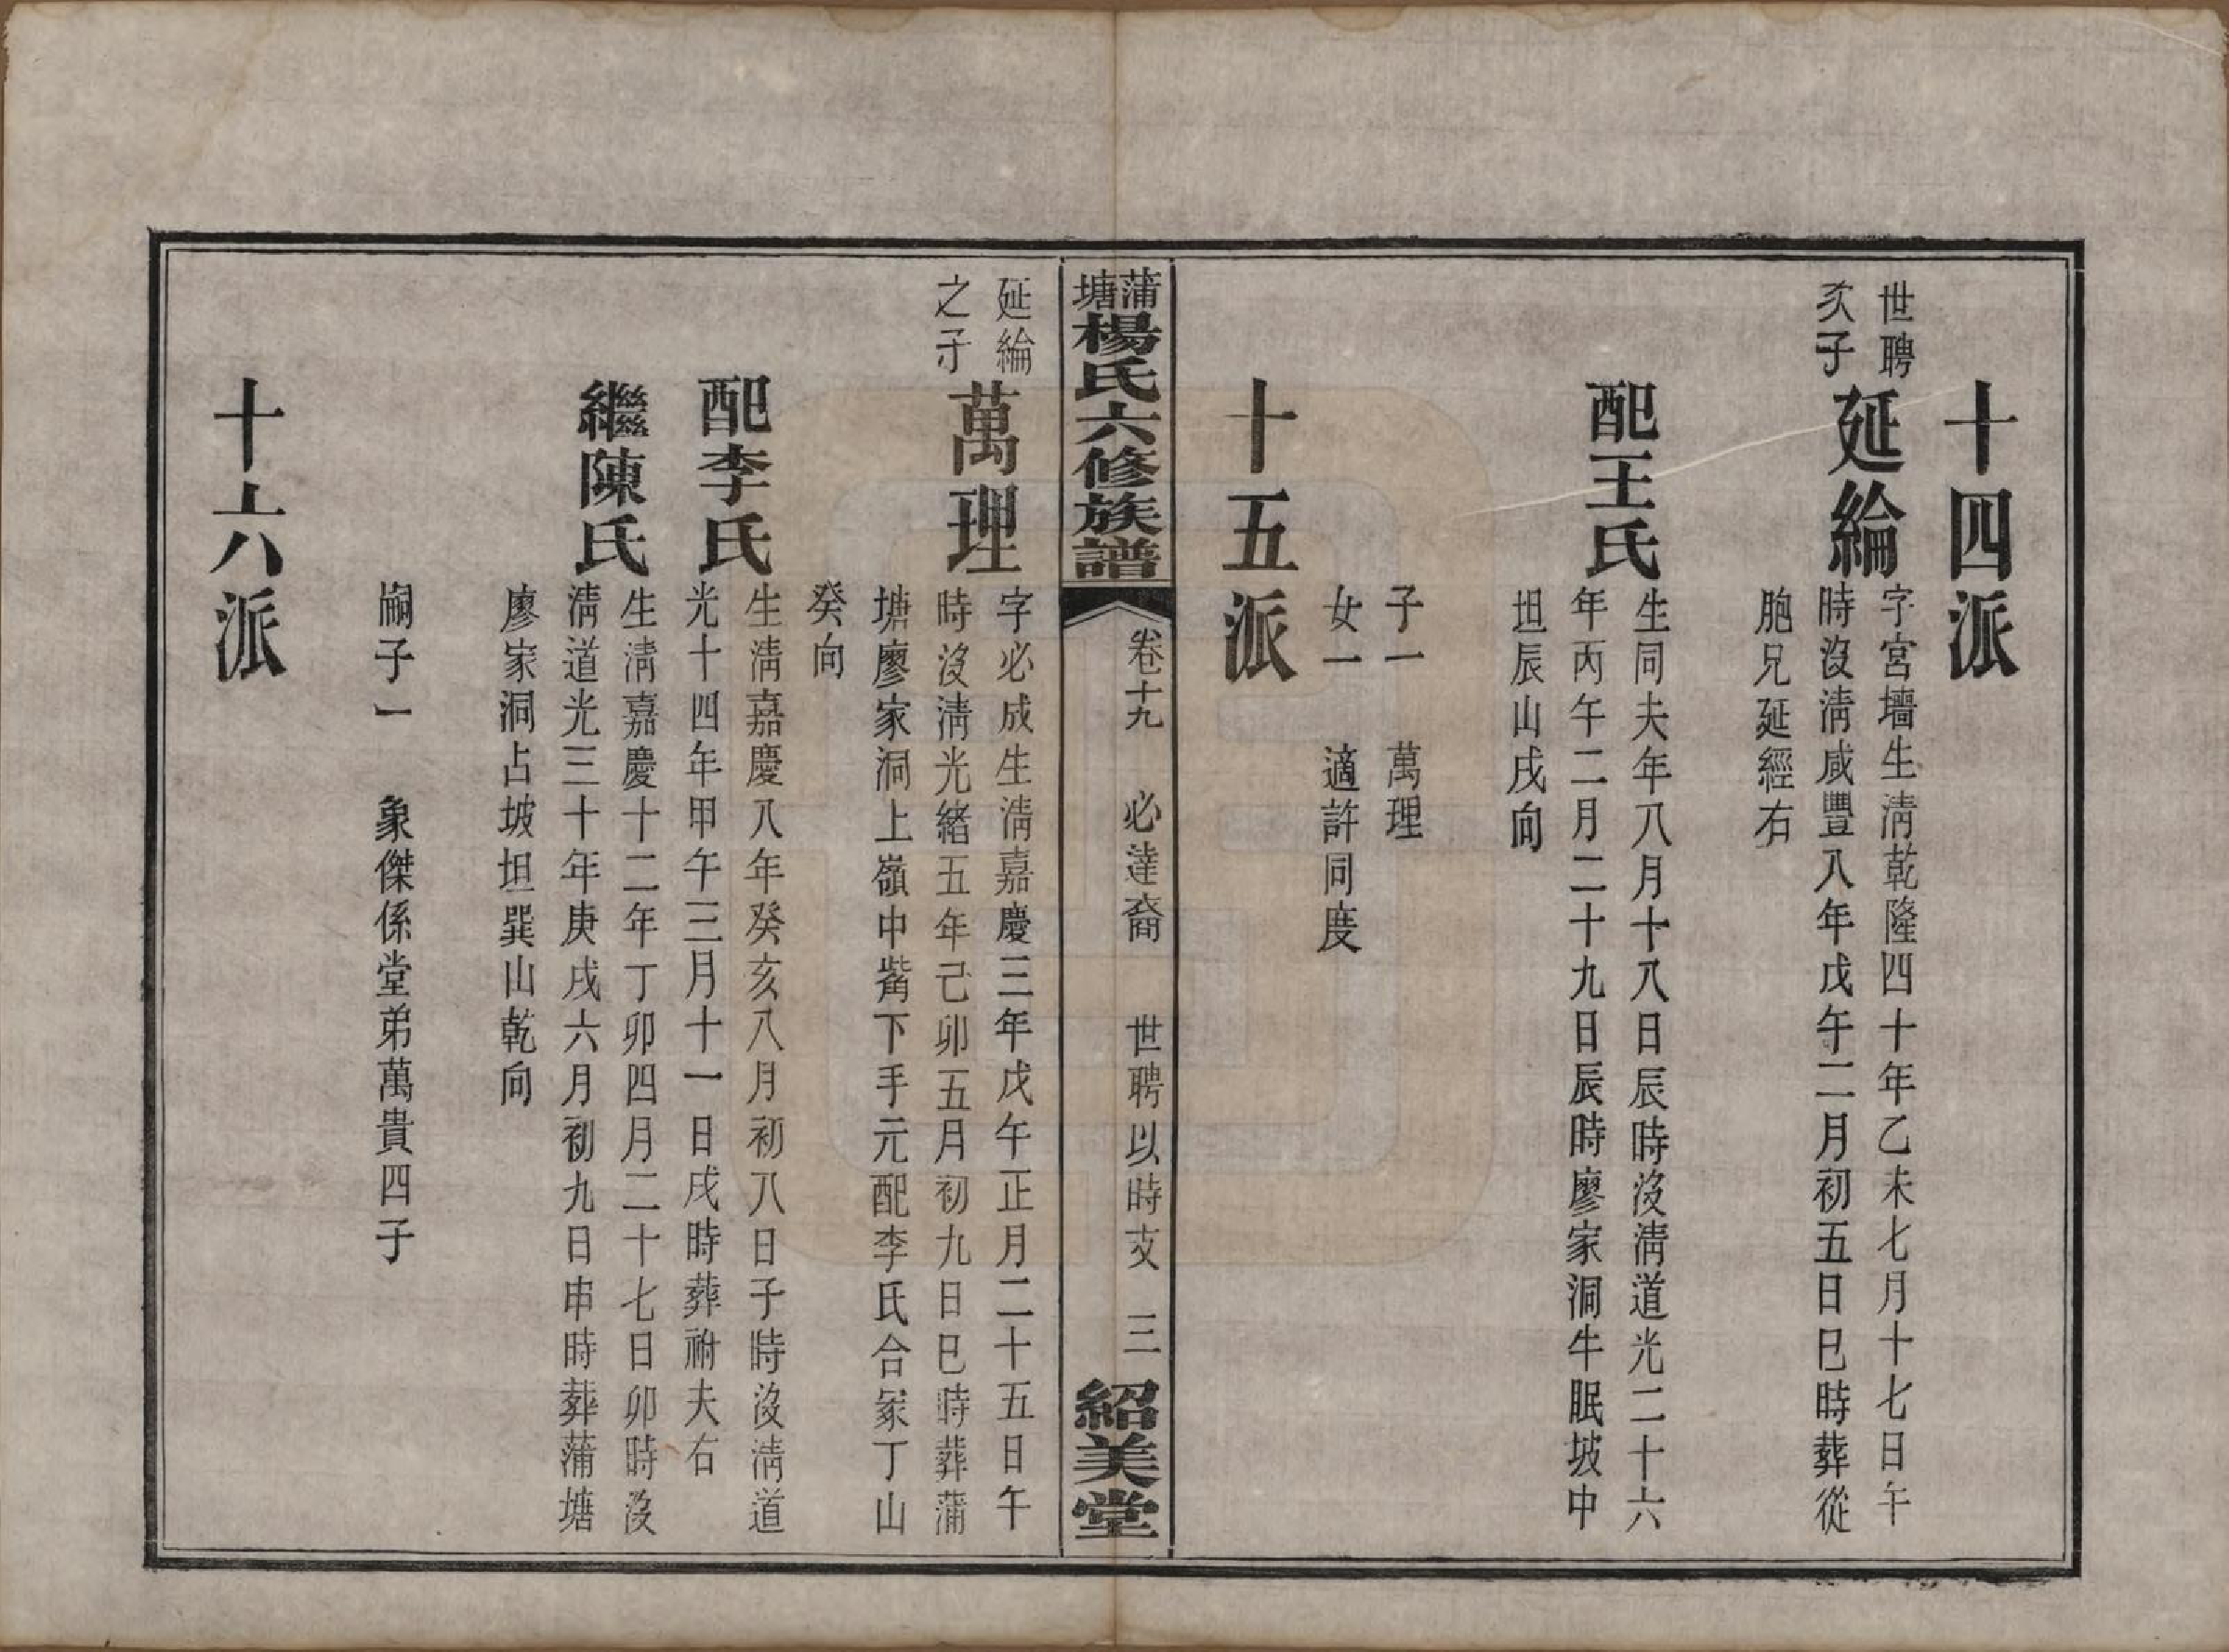 十四派
世聘
次子
延綸
字宮墻生淸乾隆四十年乙未七月十七日午
時沒淸咸豐八年戊午二月初五日巳時葬從
胞兄延經右
配王氏
生同夫年八月十八日辰時沒淸道光二十六
年丙午二月二十九日辰時廖家洞牛眠坡中
坦辰山戌向
子一　萬理
女一　適許同度
十五派
蒲塘楊氏六修族譜
卷十九　必達裔　世聘以時支　三
紹美堂
延綸
之子
萬理
字必成生淸嘉慶三年戊午正月二十五日午
時沒淸光緒五年己卯五月初九日巳時葬蒲
塘廖家洞上嶺中觜下手元配李氏合冢丁山
癸向
配李氏
生淸嘉慶八年癸亥八月初八日子時沒淸道
光十四年甲午三月十一日戌時葬祔夫右
繼陳氏
生淸嘉慶十二年丁卯四月二十七日卯時沒
淸道光三十年庚戌六月初九日申時葬蒲塘
廖家洞占坡坦巽山乾向
嗣子一　象傑係堂弟萬貴四子
十六派